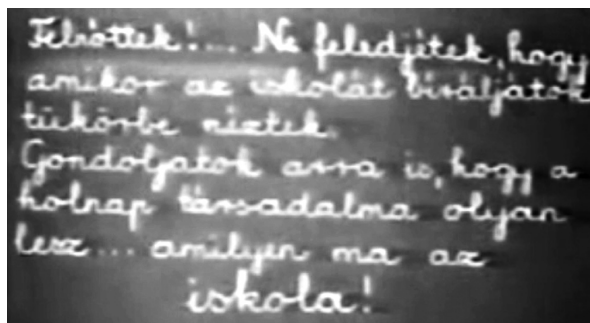 Felnőttek!... Ne feledjétek, hogy
amikor az iskolát bíráljátok
tükörbe néztek.
Gondoljatok arra is, hogy a
holnap társadalma olyan
lesz... amilyen ma az
iskola!